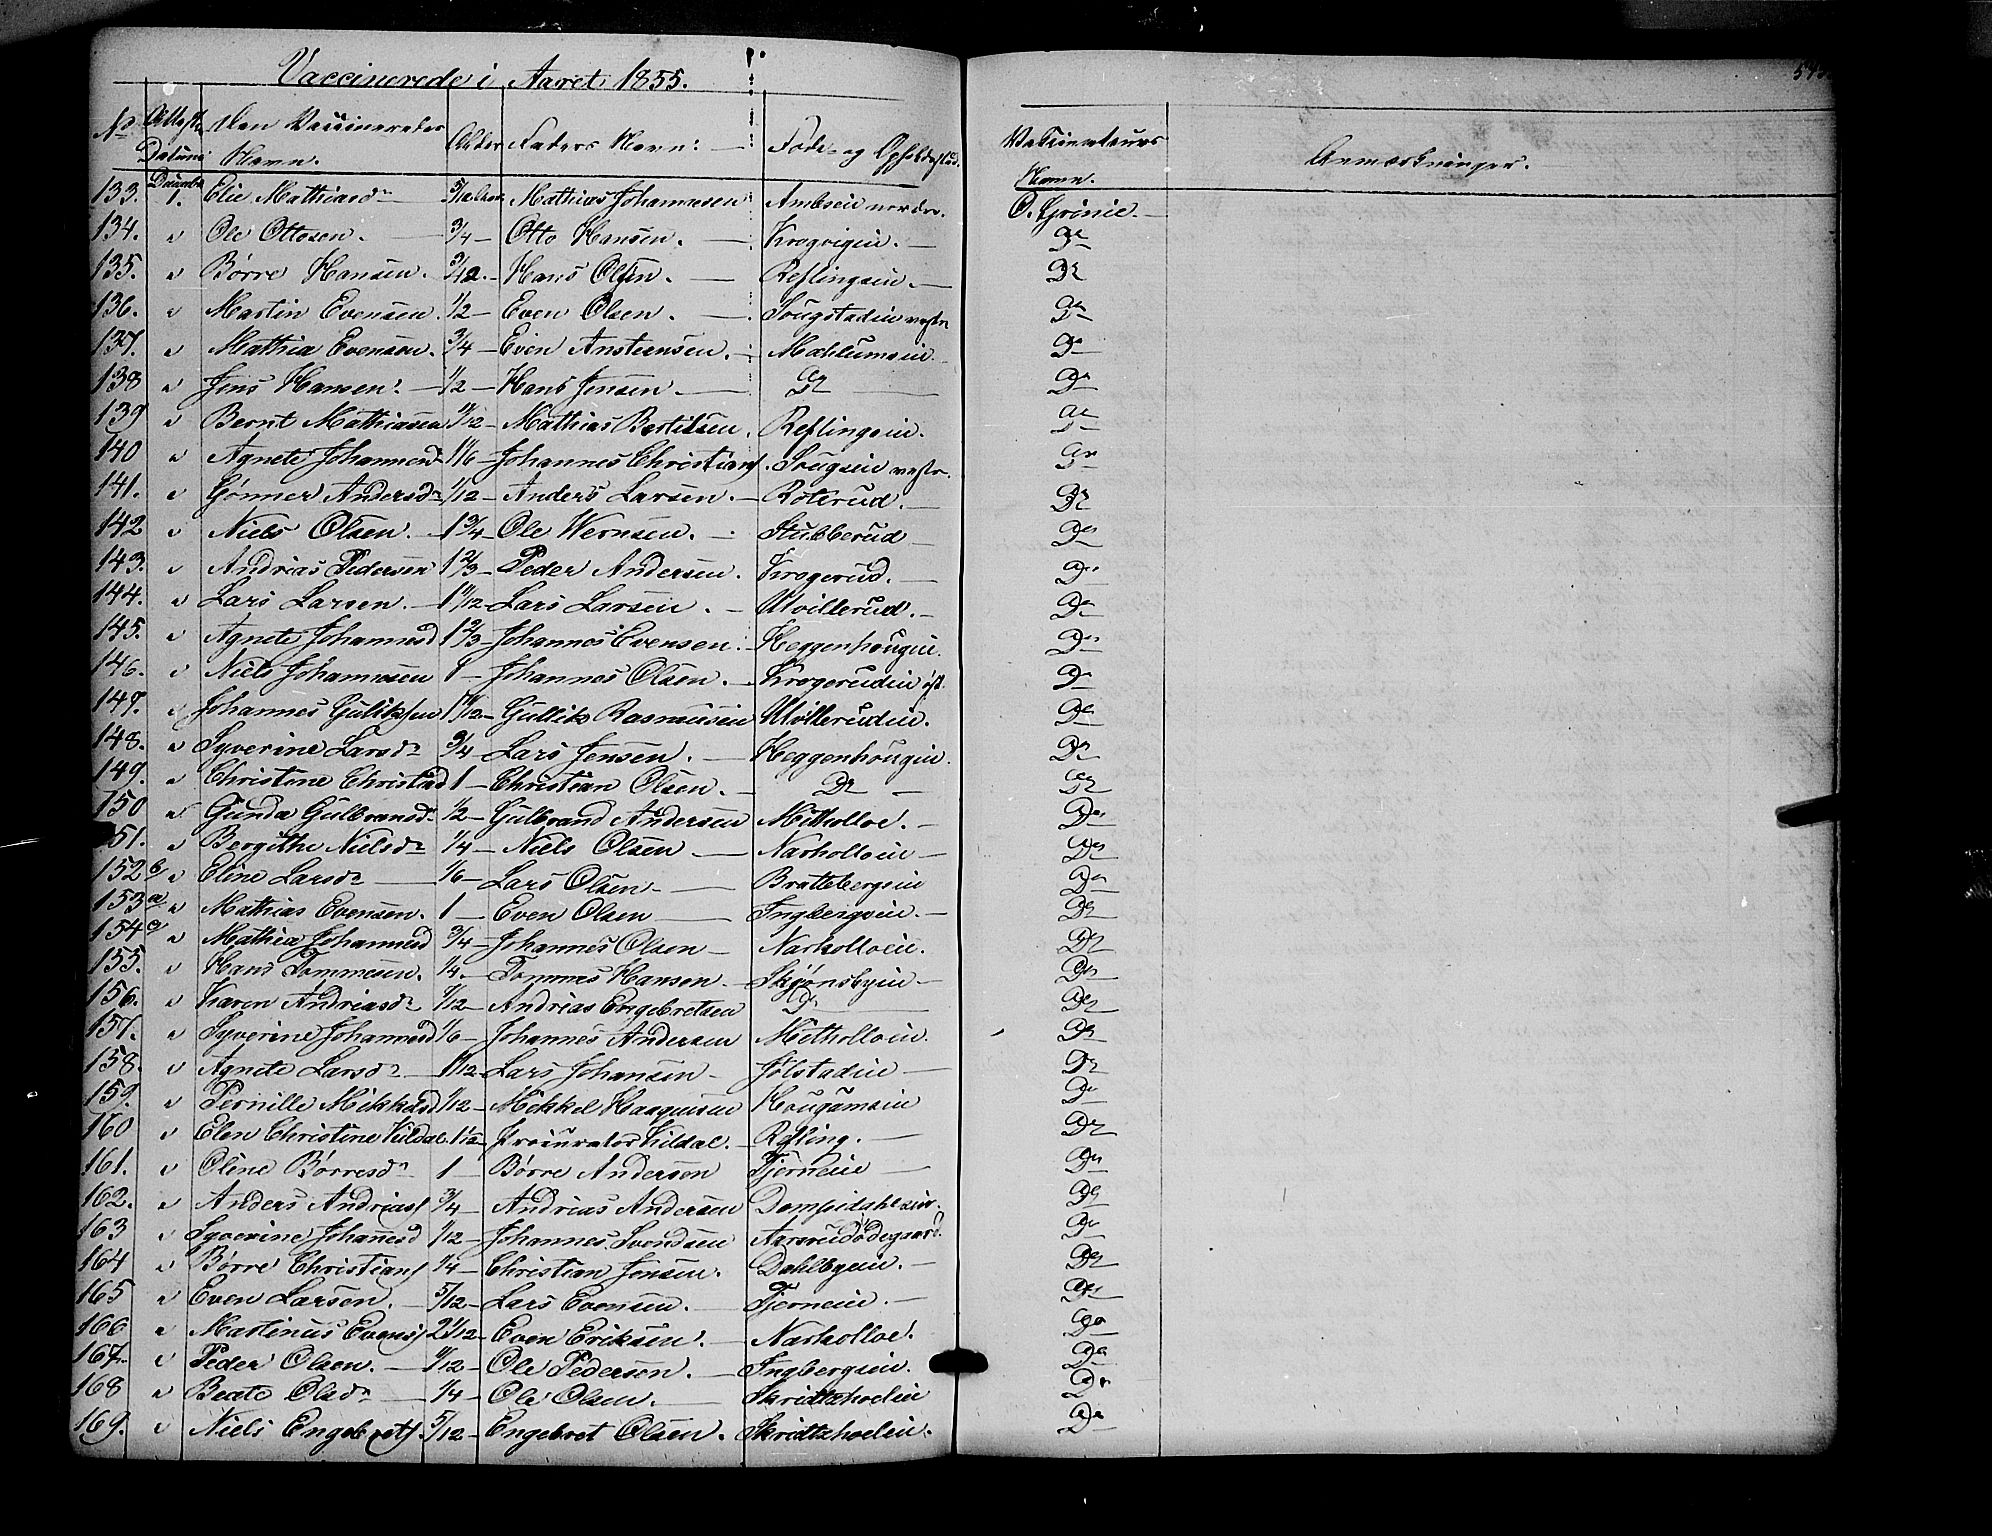 Vaccinerede i Aaret 1855.
No Attestens Datum. Den Vaccineredes Navn. Alder Faders Navn: Føde- og Opholdssted. Vaccinateurs Navn. Anmærkninger.
133. Decembr 1. Elie Mathiasdr 5/12 Mathias Johannesen nordre. O. Grinie.
134. " Ole Ottosen. 3/4 Otto Hansen. Krogvigen. Do
135. " Børre Hansen. 3/12 Hans Olsen. Reflingsein. Do
136. " Martin Evensen. 1/2 Even Olsen. Sougstadein vestre Do
137. " Mathia Evensen. 3/4 Even Anstensen. Mæhlumsein Do
138 " Jens Hansen. 1/2 Hans Jensen Do Do
139 " Bernt Mathiasen Mathias Bertilsen. Reflingsein. Do
140 " Agnete Johannesd 1 1/6 Johannes Christians. Sougsein vestr. Do
141. " Gønner Andersdr 1/12 Anders Larsen. Roterud. Do
142 " Niels Olsen. 1 3/4 Ole Wernsen. Stubberud Do
143. " Andrias Pedersen 1 2/3 Peder Andersen. Krogerud. Do
144. " Lars Larsen. Lars Larsen. Ulvillerud. Do
145. " Agnete Johannesd 1 2/3 Johannes Evensen. Heggenhougen. Do
146. " Niels Johannesen 1 Johannes Olsen. Krogerudein øst. Do
147. " Johannes Guliksen Gullik Rasmusen Ulvillerudein. Do
148. " Syverine Larsdr 3/4 Lars Jensen. Heggenhougein. Do
149. " Christine Christiad 1 Christian Olsen. Do Do
150 " Gunda Gulbransdr 1/2 Gulbrand Andersen Metholloe. Do
151. " Bergithe Nielsdr 1/4 Niels Olsen Narholloein Do
152 b/ " Eline Larsdr 1/6 Lars Olsen Brattebergsein Do
153 a " Mathias Evensen. 1 Even Olsen Ingbergsein. Do
154 a/ " Mathia Johannesd 3/4 Johannes Olsen Narholloein. Do
155. " Hans Tommesen. 1/4. Tommes Hansen. Skjønsbyein Do
156. " Karen Andriasdr Andrias Engebretsen Do Do
157. " Syverine Johannesd 1/6 Johannes Andersen Metholloein. Do
158. " Agnete Larsdr Lars Johansen Jølstadein Do
159. " Pernille Mikkelsd Mikkel Haagensen Hougumsein Do
160 " Elen Christine Kildal. Procurator Kildal. Refling. Do
161. " Oline Børresdr 1 Børre Andersen Tjerneie Do
162. " Anders Andrias 3/4 Andrias Andersen Dompidahlsein. Do
163 " Syverine Johanesd 1/12 Johannes Svendsen Aasrudødegaard. Do
164 " Børre Christians 1/4 Christian Jensen. Dahlbyein. Do
165 " Even Larsen. 5/12 Lars Evensen. Tjerneie. Do
166 " Martinus Evens 2 1/12 Even Eriksen. Narholloe. Do
167. " Peder Olsen. Ole Pedersen. Ingbergsein. Do
168 " Beate Olsdr 1/4 Ole Olsen. Skridtshoelein Do
169. " Niels Engebrets. 5/12 Engebret Olsen. Skridtshoelein. Do